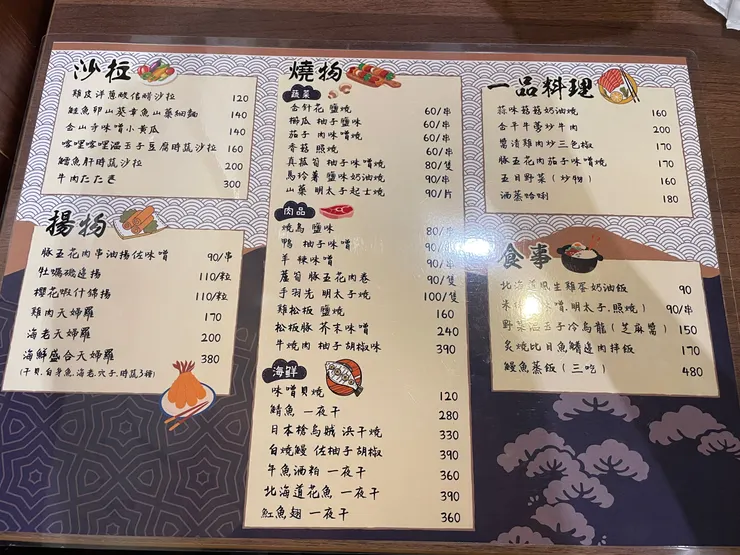 沙拉
雞皮洋蔥鰹借朥沙拉 120
鮭魚卵山葵章魚山藥細麵 140
金山寺味噌小黃瓜 140
喀哩喀哩溫玉子豆腐時蔬沙拉 160
鱈魚肝時蔬沙拉 200
牛肉たたき 300
揚物
豚五花肉串油揚佐味噌 90/串
牡蠣磯邊揚 110/粒
櫻花蝦什錦揚 110/粒
雞肉天婦羅 170
海老天婦羅 200
海鮮盛合天婦羅 380
(干貝.白身魚.海老.穴子.時蔬3種)
燒物
蔬菜
金針花 鹽燒 60/串
櫛瓜 柚子鹽味 60/串
茄子 肉味噌燒 60/串
香菇 照燒 60/串
真菰筍 柚子味噌燒 80/隻
馬玲薯 鹽味奶油燒 90/串
山藥 明太子起士燒 90/片
肉品
燒鳥 鹽味 80/串
鴨 柚子味噌 90/串
羊 辣味噌 90/串
蘆筍 豚五花肉卷 90/隻
手羽先 明太子燒 100/隻
雞松板 鹽燒 160
松板豚 芥末味噌 240
牛燒肉 柚子胡椒味 390
海鮮
味噌貝燒 120
鯖魚 一夜干 280
日本槍烏賊 浜干燒 330
白燒鰻 佐柚子胡椒 390
牛魚酒粕 一夜干 360
北海道花魚 一夜干 390
魟魚翅 一夜干 360
一品料理
蒜味菇菇奶油燒 160
合平牛蒡炒牛肉 200
醬漬雞肉炒三色椒 170
豚五花肉茄子味噌燒 170
五目野菜(炒物) 160
酒蒸蛤蜊 180
食事
北海道風生雞蛋奶油飯 90
噌.明太子.照燒) 90/串
野菜溫玉子冷烏龍(芝麻醬) 150
炙燒比目魚鰭邊肉拌飯 170
鰻魚蒸飯(三吃) 480